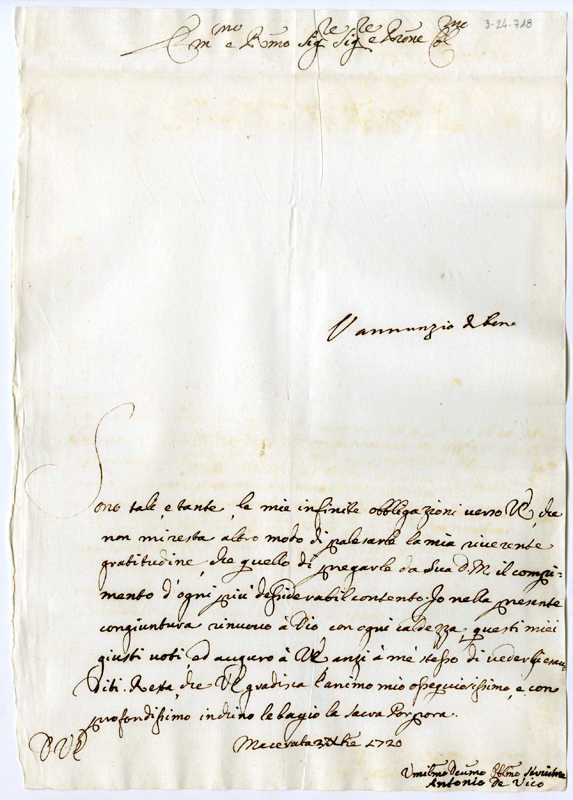 3-24-718
Em.no e R.mo Sig.re Sig.re e P.rone Col.mo
L'annunzio di bene
Sono tali, e tante, le mie infinite obbligazioni verso VE, che
non mi resta altro modo di palesarle la mia riverente
gratitudine, che quello di pregarle da Sua D. M. il compi=
mento d'ogni più desiderabil contento. Io nella presente
congiuntura rinuovo à Dio con ogni caldezza, questi miei
giusti voti ed auguro à VE anzi à me stesso di vederli esau
diti. Resta, che VE gradisca l'animo mio ossequiosissimo, e con
profondissimo inchino le bagio la Sacra Porpora.
D VE
Macerata Xbre 1720
Umil.mo Deu.mo Obl.mo Servitore
Antonio De Vico